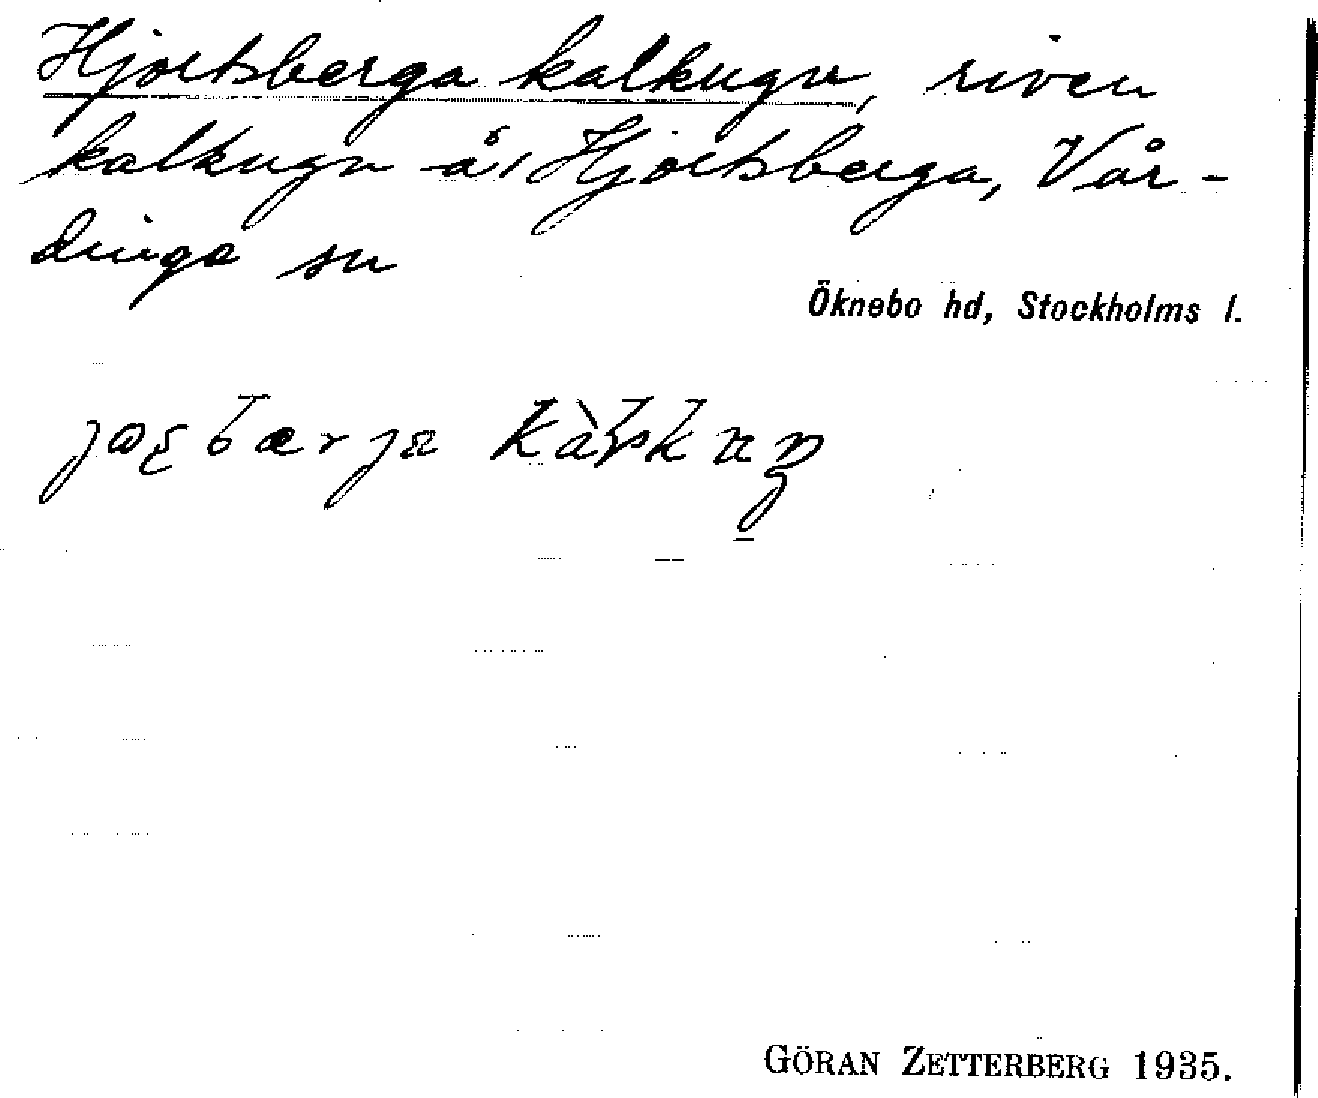 Hjortsberga kalkugn, riven
kalkugn å Hjortsberga, Vår-
dinga sn
Öknebo hd, Stockholms l.
GÖRAN ZETTERBERG 1935.